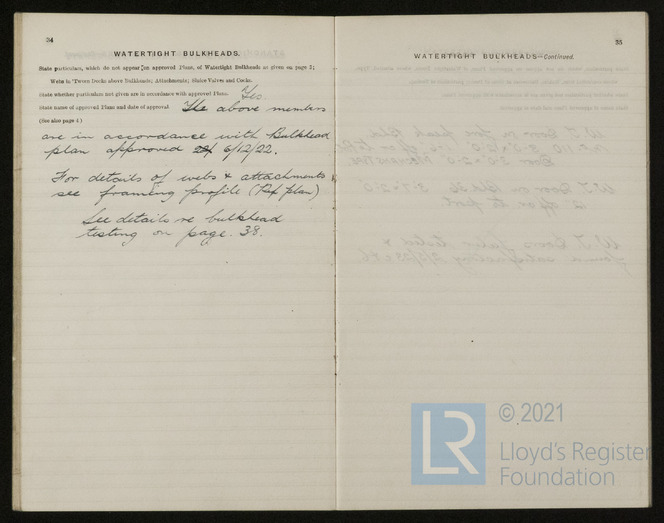 34
WATERTIGHT BULKHEADS.
State particulars, which do not appear on approved Plans, of Watertight Bulkheads as given on page 3;
Webs in 'Tween Decks above Bulkheads; Attachments; Sluice Valves and Cocks.
State whether particulars not given are in accordance with approved Plans. Yes.
State name of approved Plans and date of approval The above members
(See also page 4)
are in accordance with Bulkhead
plan approved 6/12/22.
For details of webs & attachments
see framing profile (Ref plan)
See details re bulkhead
testing on page. 38.
35
WATERTIGHT BULKHEADS—Continued.
LR
© 2021
Lloyd's Register
Foundation